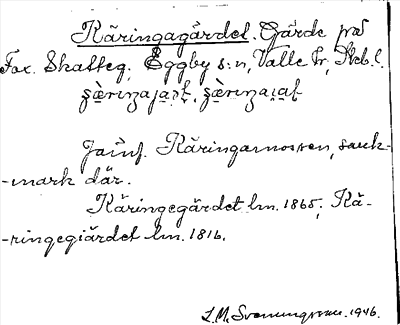 Käringagärdet. Gärde på
Fax. Skatteg., Eggby s:n, Valle hr, Skb.l.
Jämf. Käringamossen, sank-
-mark där.
Käringegärdet lm. 1865, Kä-
-ringegiärdet lm. 1816.
L.M. Svenungsson. 1946.